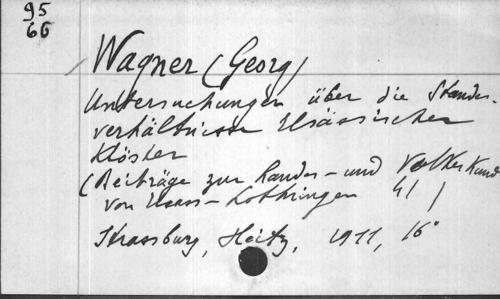 95
66
Wagner (Georg)
Untersuchungen über die Standes-
verhältnisse Elsässischer
Klöster
(Beiträge zur Landes- und Volkskund
von Elsass-Lothringen 41)
Strassburg, Heitz, 1911, 16°